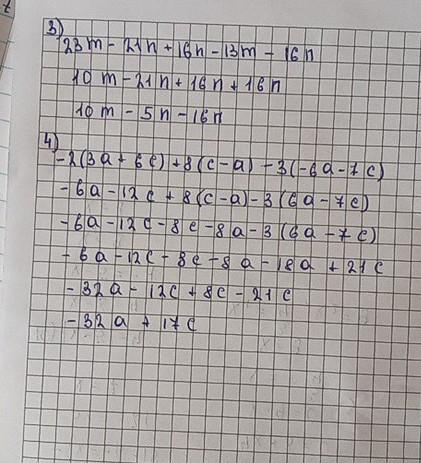 3)
23m - 21n + 16n - 13m - 16n
10m - 21n + 16n + 16n
10m - 5n - 16n
4)
-2(3a + 6c) + 8(c - a) - 3(-6a - 7c)
-6a - 12c + 8(c - a) - 3(6a - 7c)
-6a - 12c - 8c - 8a - 3(6a - 7c)
-6a - 12c - 8c - 8a - 18a + 21c
-32a - 12c + 8c - 21c
-32a + 17c